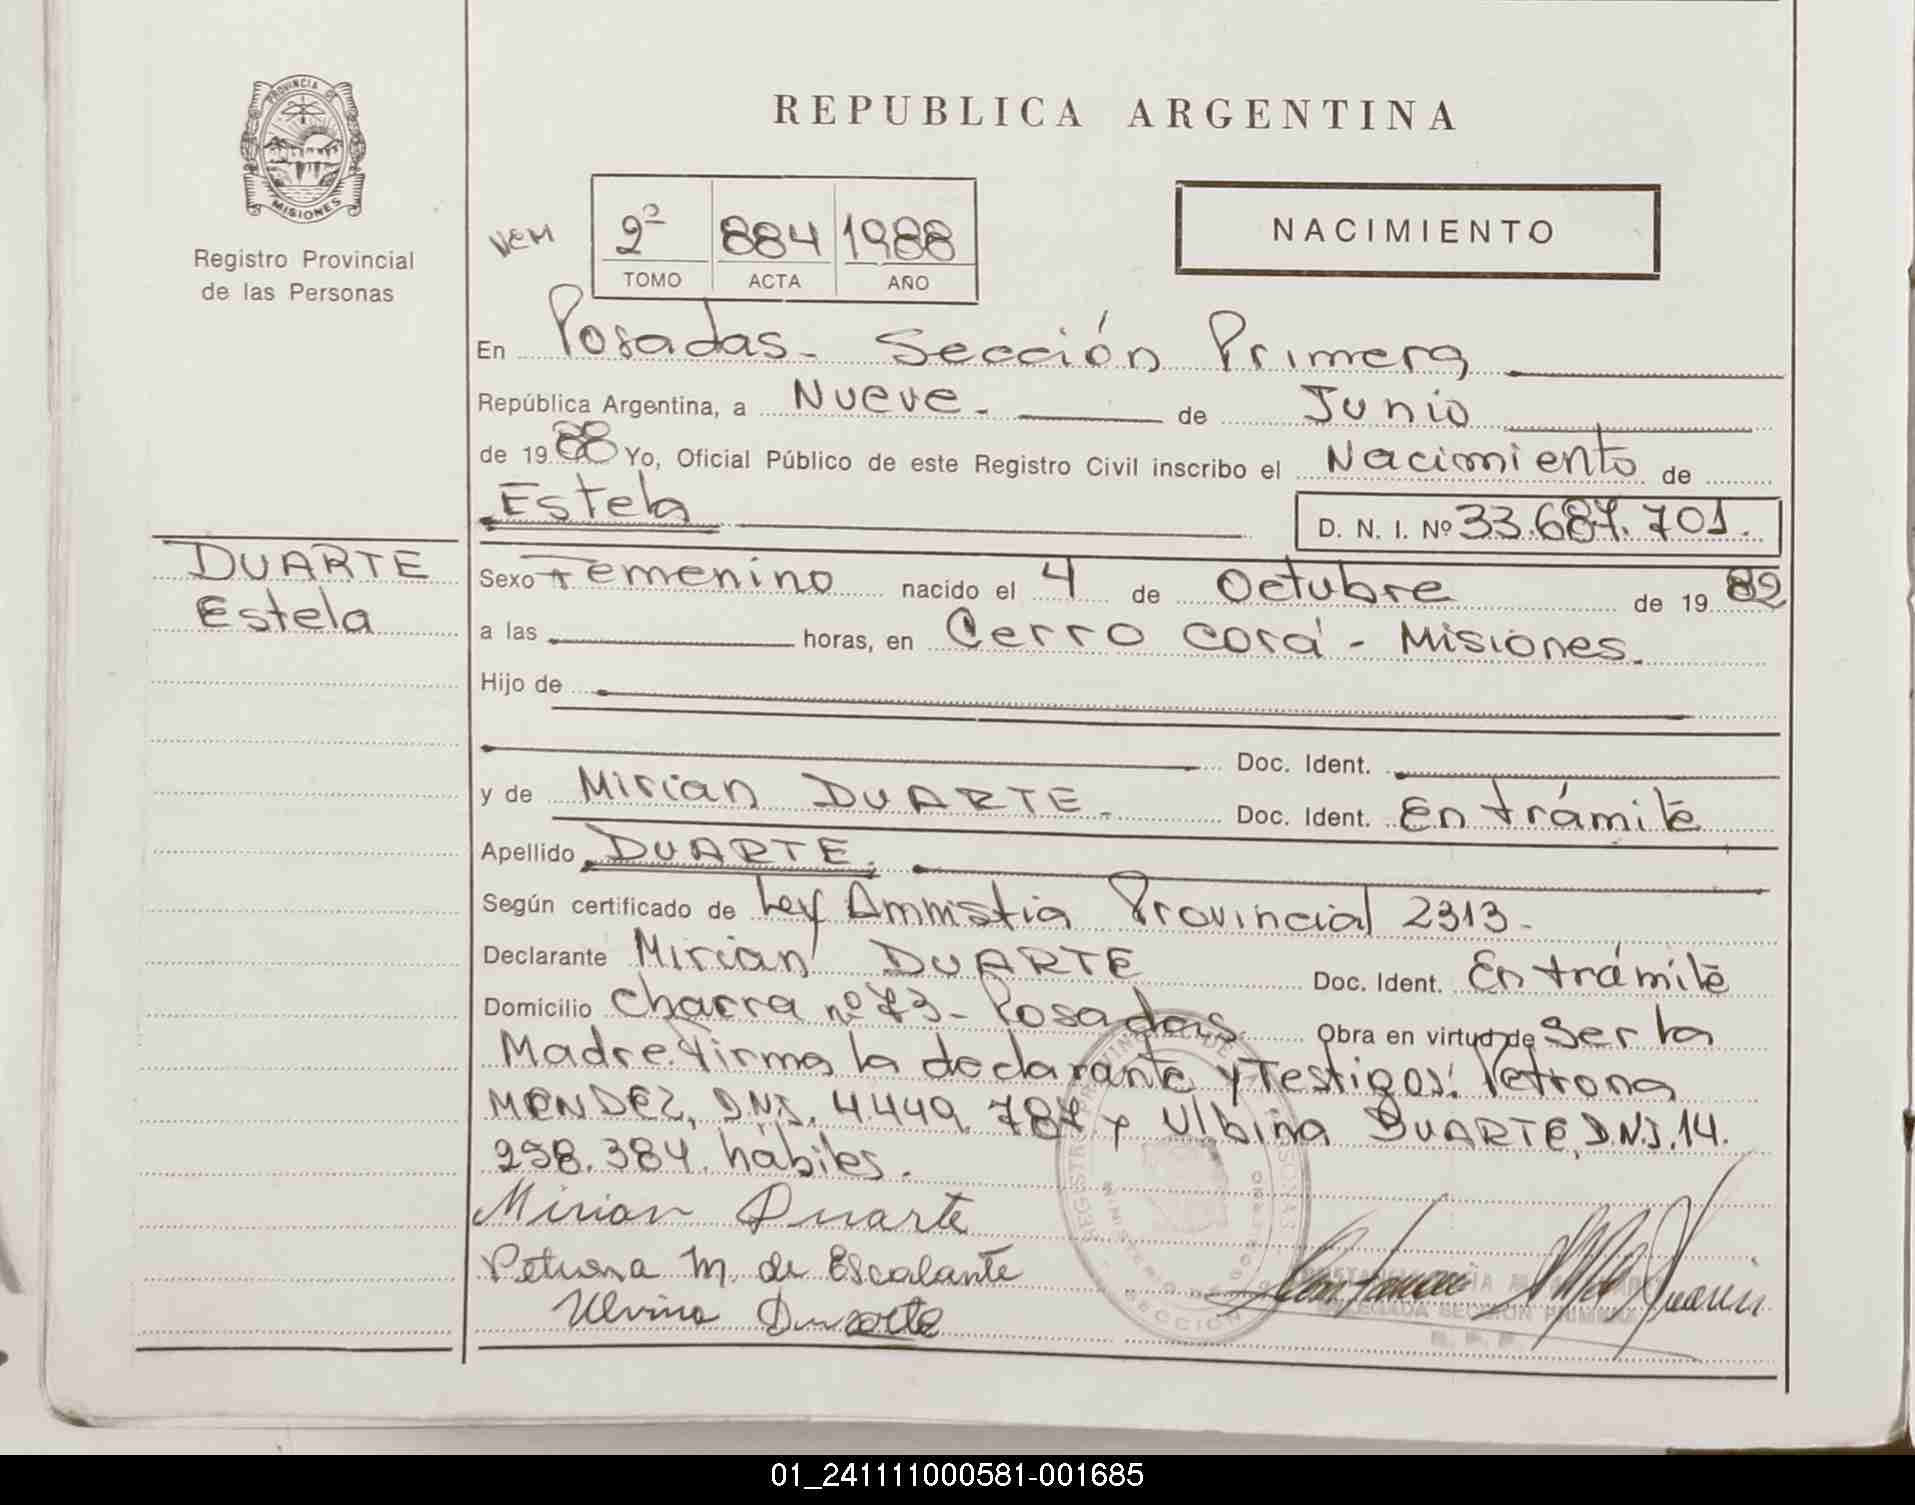 PROVINCIA DE
MISIONES
Registro Provincial
de las Personas
REPUBLICA ARGENTINA
2º 884 1988
TOMO ACTA AÑO
NACIMIENTO
En Posadas - Sección Primera
República Argentina, a Nueve - de Junio
de 1988 Yo, Oficial Público de este Registro Civil inscribo el Nacimiento de
Estela
D. N. I. Nº 33.687.701.
DUARTE
Estela
Sexo Femenino nacido el 4 de Octubre de 1982
a las horas, en Cerro corá - Misiones.
Hijo de
Doc. Ident.
y de Mirian DUARTE. Doc. Ident. En trámite
Apellido DUARTE.
Según certificado de Ley Amnistia Provincial 2313 -
Declarante Mirian DUARTE Doc. Ident. En trámite
Domicilio Chacra nº 73 - Posadas Obra en virtud de Ser la
Madre. Firma la declarante y Testigos: Petrona
MENDEZ, D.N.I. 4.449.787 y Ulbina DUARTE, D.N.I. 14.
298.384. hábiles.
Mirian Duarte
Petrona M. de Escalante
Ulvina Duarte
01_241111000581-001685